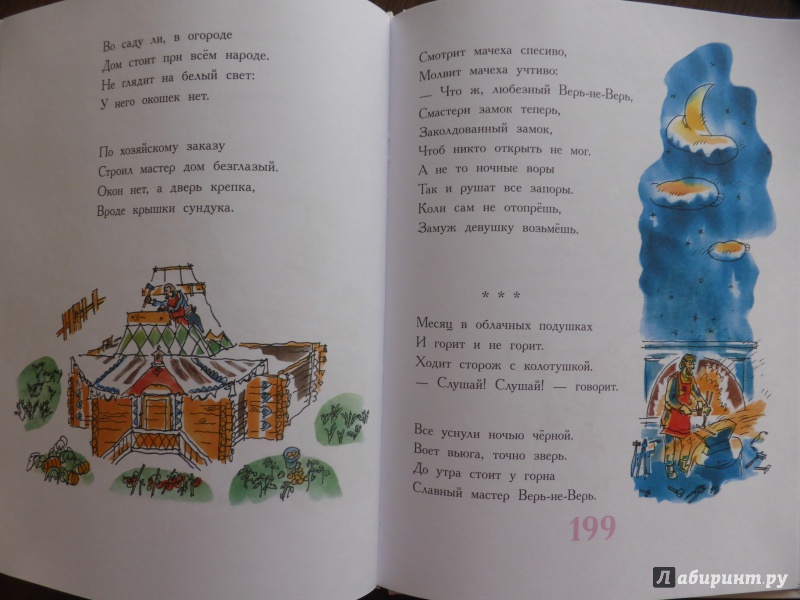 Во саду ли, в огороде
Дом стоит при всём народе.
Не глядит на белый свет:
У него окошек нет.
По хозяйскому заказу
Строил мастер дом безглазый.
Окон нет, а дверь крепка,
Вроде крышки сундука.
Смотрит мачеха спесиво,
Молвит мачеха учтиво:
— Что ж, любезный Верь-не-Верь,
Смастери замок теперь,
Заколдованный замок,
Чтоб никто открыть не мог.
А не то ночные воры
Так и рушат все запоры.
Коли сам не отопрёшь,
Замуж девушку возьмёшь.
* * *
Месяц в облачных подушках
И горит и не горит.
Ходит сторож с колотушкой.
— Слушай! Слушай! — говорит.
Все уснули ночью чёрной.
Воет вьюга, точно зверь.
До утра стоит у горна
Славный мастер Верь-не-Верь.
199
Лабиринт.ру